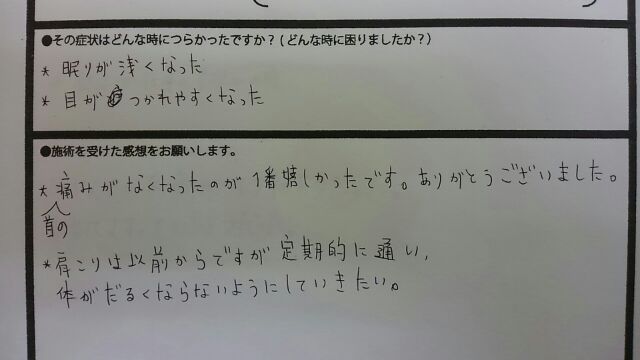 ●その症状はどんな時につらかったですか？(どんな時に困りましたか？)
* 眠りが浅くなった
* 目がつかれやすくなった
●施術を受けた感想をお願いします。
* 痛みがなくなったのが1番嬉しかったです。ありがとうございました。
首の
* 肩こりは以前からですが定期的に通い、
体がだるくならないようにしていきたい。